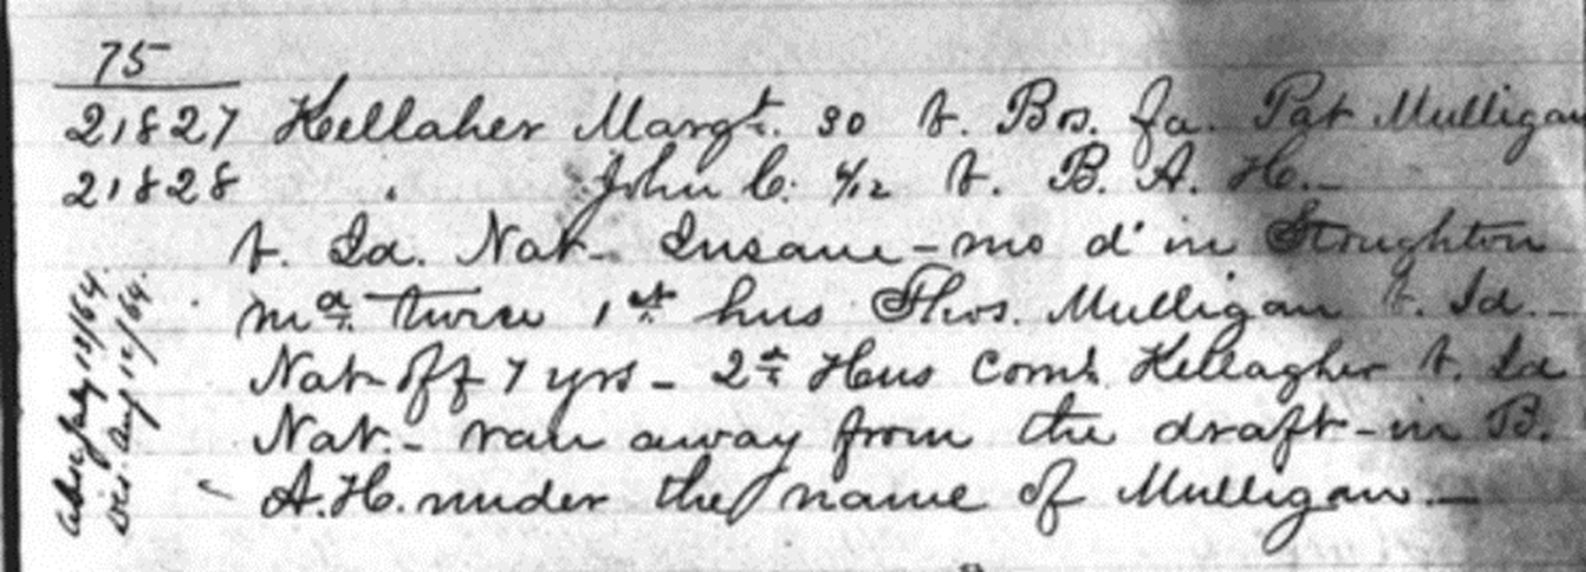 75
21827 Kellaher Margt. 30 b. Bos. fa. Pat Mulligan
21828 " John C. 4/12 b. B. A. H.-
b. Id. Nat- Insane - mo d' in Stoughton
ma. twice 1st hus Thos. Mulligan b. Id. -
Nat off 7 yrs - 2d Hus Corns. Kellagher b. Id
Nat. - ran away from the draft - in B.
A.H. under the name of Mulligan. -
July 13/64.
Dis. Aug 12/64.